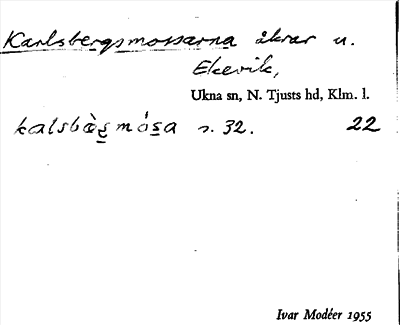 Karlsbergsmossarna åkrar u.
Ekevik,
Ukna sn, N. Tjusts hd, Klm. l.
kalsbàs̱mósa s. 32. 22
Ivar Modéer 1955